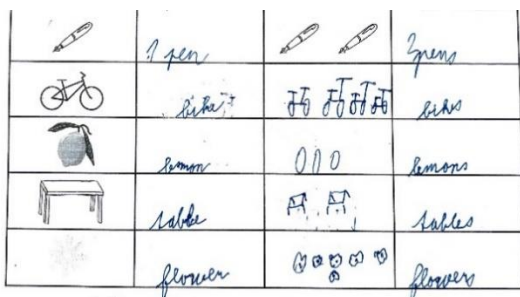 1 pen 3pens
bike bikes
lemon lemons
table tables
flower flowers